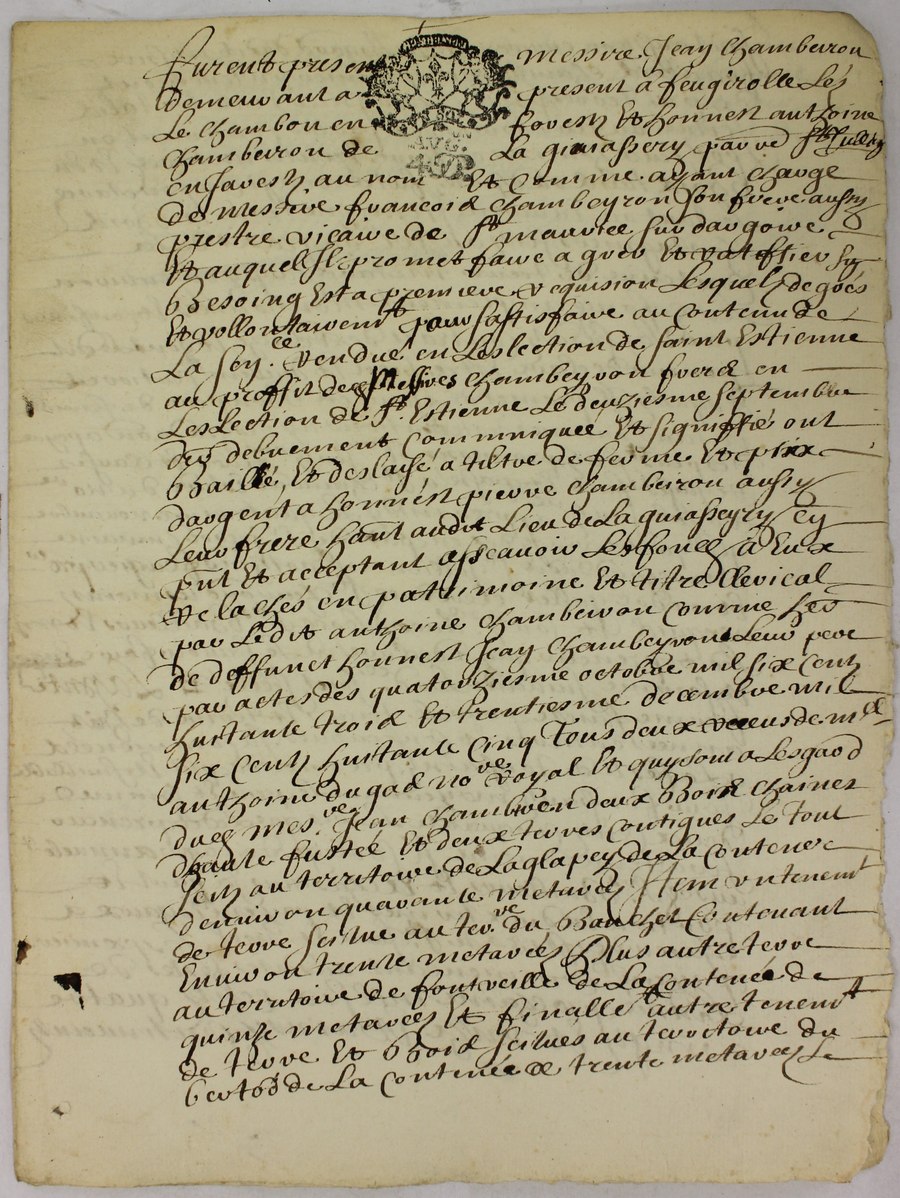 furent presen messire Jean Chambeiron
demeurant a present a feugirolle Les
Le chambon en forestz Et honnest anthoine
Chambeiron de La quiassery par ve St
en Javestz au nom Et comme ayant charge
de messire francois chambeyron son frere aussy
prestre vicaire de St maurice sur dargoire
Et auquel Il promet faire agreer Et rattiffier sy
Besoing Est a premiere requision Lesquelz de grés
Et vollontairemt pour sattisfaire au contenu de
La sen.ce rendue en Leslection de saint Estienne
au proffit des Messires chambeyron freres en
Leslection de St. Estienne Le deuziesme septembre
der debuement commniquée Et signiffié ont
Baillé, Et deslaisé a tiltre de ferme Et prix
dargent a honnest pierre chambeiron aussy
Leur frere hant audit Lieu de La quiasseyry cy
pnt Et acceptant assçavoir Les fonds a Eux
relachés en patrimoine Et titre clerical
par Ledit anthoine chambeiron comme her
de deffunct honnest Jean chambeyron Leur pere
par actes des quatorziesme octobre mil six centz
huictante trois et trentiesme decembre mil
six centz huictante cinq Tous deux receus de me
anthoine dugad nore Royal Et quy sont a Lesgard
dud mesre Jean chambron deux Bois chaines
dhaute fustée Et deux terres contigues Le tout
scitz au territoire de Laglapey de La contenee
denviron quarante metarées Item un tenemt
de terre scitue au terre du Banchet Contenant
Environ trente metarées Plus autre terre
au territoire de fontveille de La Contenée de
quinze metarées Et finallemt autre tenemt
de terre Et Bois scitués au terrotoire du
de La contenée de trente metarées Le